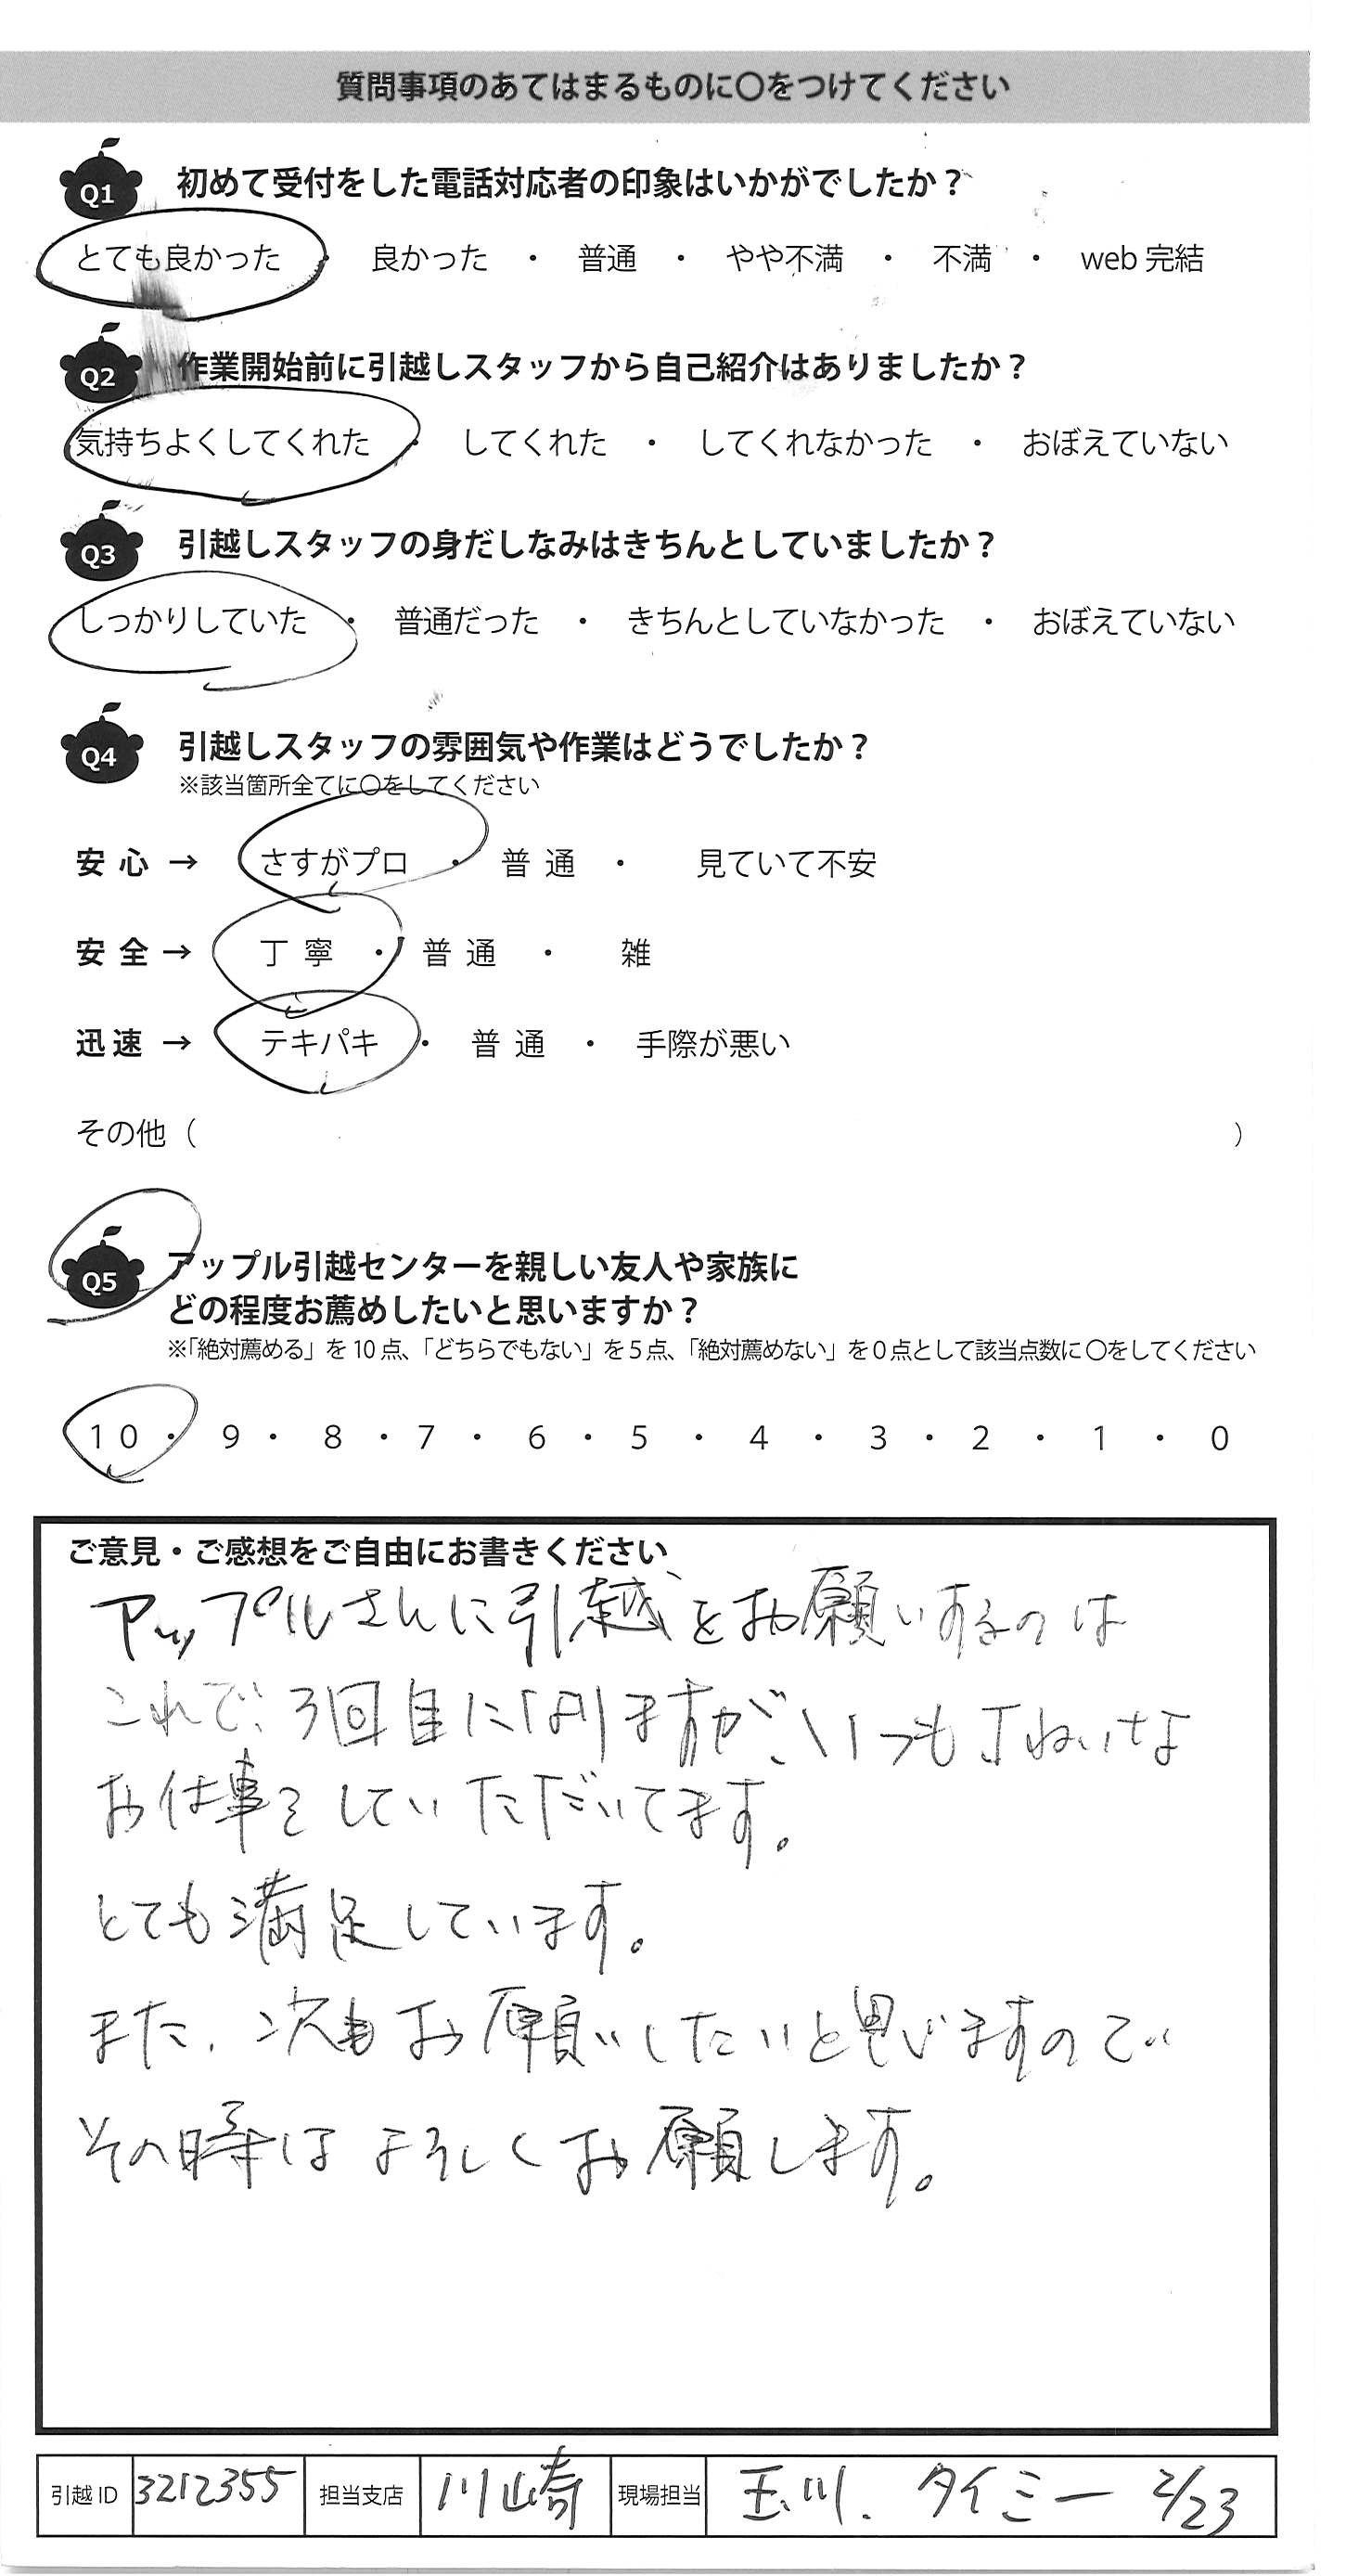 質問事項のあてはまるものに〇をつけてください
Q1 初めて受付をした電話対応者の印象はいかがでしたか？
とても良かった ・ 良かった ・ 普通 ・ やや不満 ・ 不満 ・ web 完結
Q2 作業開始前に引越しスタッフから自己紹介はありましたか？
気持ちよくしてくれた ・ してくれた ・ してくれなかった ・ おぼえていない
Q3 引越しスタッフの身だしなみはきちんとしていましたか？
しっかりしていた ・ 普通だった ・ きちんとしていなかった ・ おぼえていない
Q4 引越しスタッフの雰囲気や作業はどうでしたか？
※該当箇所全てに〇をしてください
安心 → さすがプロ ・ 普通 ・ 見ていて不安
安全 → 丁寧 ・ 普通 ・ 雑
迅速 → テキパキ ・ 普通 ・ 手際が悪い
その他（ ）
Q5 アップル引越センターを親しい友人や家族に
どの程度お薦めしたいと思いますか？
※「絶対薦める」を 10 点、「どちらでもない」を 5 点、「絶対薦めない」を 0 点として該当点数に〇をしてください
10 ・ 9 ・ 8 ・ 7 ・ 6 ・ 5 ・ 4 ・ 3 ・ 2 ・ 1 ・ 0
ご意見・ご感想をご自由にお書きください
アップルさんに引越をお願いするのは
これで、3回目になりますが、いつも丁ねいな
お仕事をしていただいてます。
とても満足しています。
また、次もお願いしたいと思いますので
その時はよろしくお願します。
引越 ID 3212355 担当支店 川崎 現場担当 玉川、タイミー 2/23